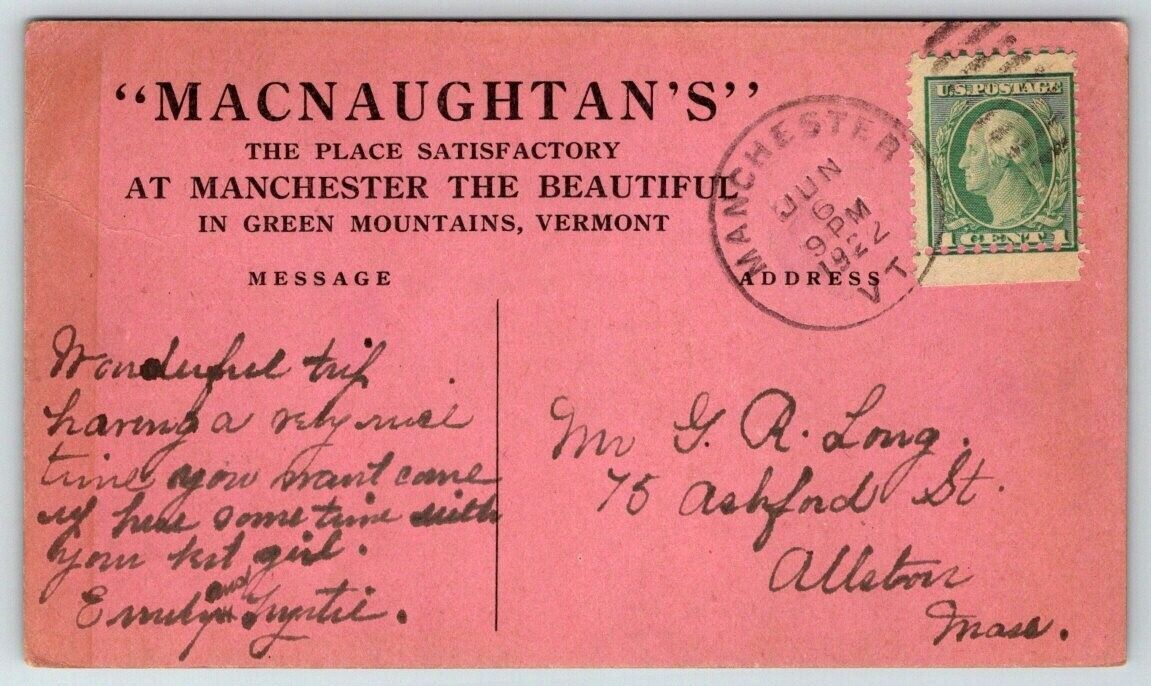 “MACNAUGHTAN'S”
THE PLACE SATISFACTORY
AT MANCHESTER THE BEAUTIFUL
IN GREEN MOUNTAINS, VERMONT
MANCHESTER
JUN
6
9 PM
1922
VT
U.S. POSTAGE
1 CENT 1
MESSAGE
ADDRESS
Wonderful trip
having a very nice
time you want come
up here some time with
your best girl.
Emily and
Mr G. R. Long.
75 Ashford St.
Allston
Mass.